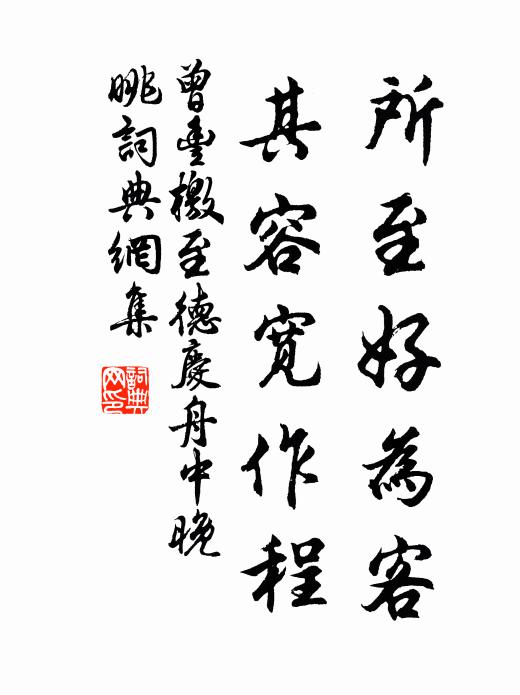 所至好為客
其容寬作程
曾豐檄至德慶舟中晚
眺詞典網集
詞典
网印